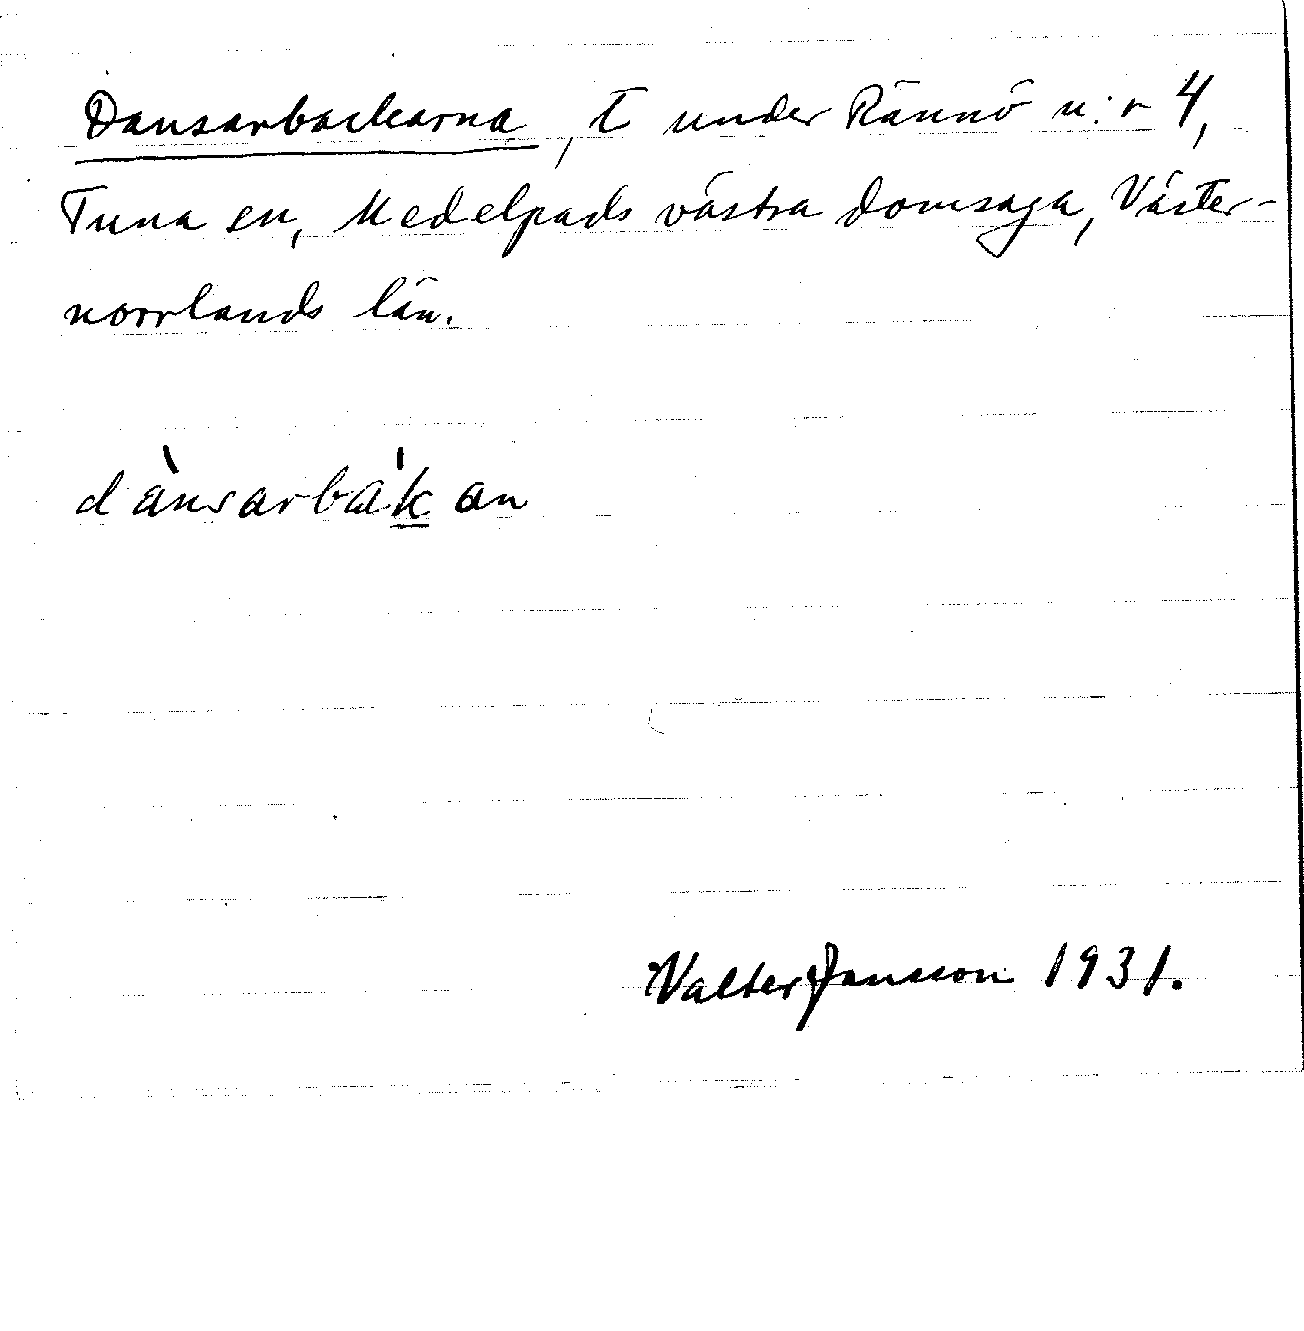 Dansarbackarna, T under Rännö n:r 4,
Tuna sn, Medelpads västra domsaga, Väster-
norrlands län.
dànsarbákan
Valter Jansson 1931.